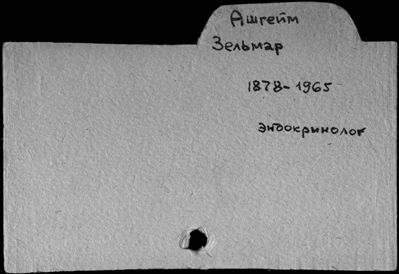 Ашгейм
Зельмар
1878-1965
эндокринолог